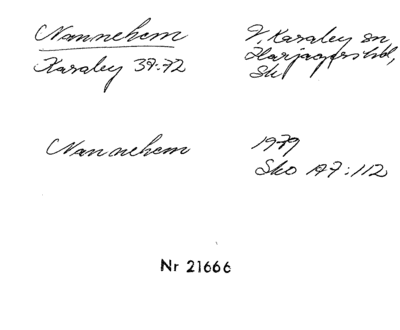 Nannehem
Karaby 37:72
V. Karaby sn
Harjagers hd,
Sk
Nannehem
1979
Sko A7:112
Nr 21666